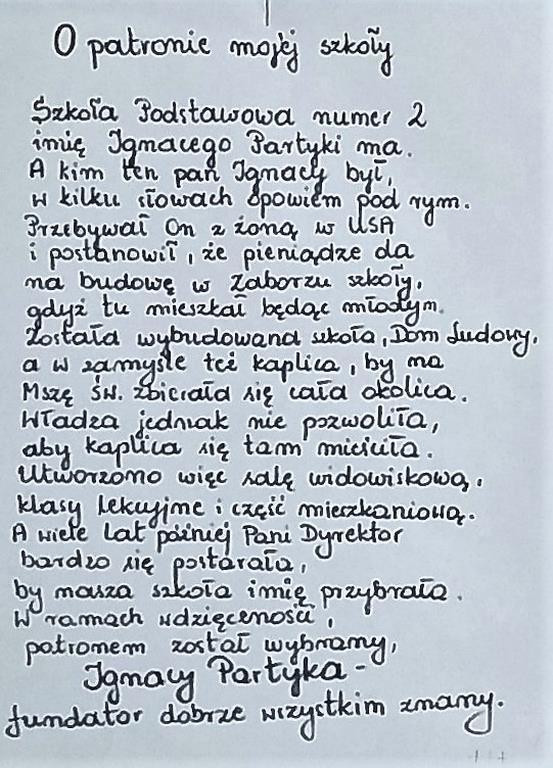 O patronie mojej szkoły
Szkoła Podstawowa numer 2
imię Ignacego Partyki ma.
A kim ten pan Ignacy był,
w kilku słowach opowiem pod rym.
Przebywał On z żoną w USA
i postanowił, że pieniądze da
na budowę w Zaborzu szkoły,
gdyż tu mieszkał będąc młodym.
Została wybudowana szkoła, Dom Ludowy,
a w zamyśle też kaplica, by na
Mszę Św. zbierała się cała okolica.
Władza jednak nie pozwoliła,
aby kaplica się tam mieściła.
Utworzono więc salę widowiskową,
klasy lekcyjne i część mieszkaniową.
A wiele lat później Pani Dyrektor
bardzo się postarała,
by nasza szkoła imię przybrała.
W ramach wdzięczności,
patronem został wybrany,
Ignacy Partyka -
fundator dobrze wszystkim znany.